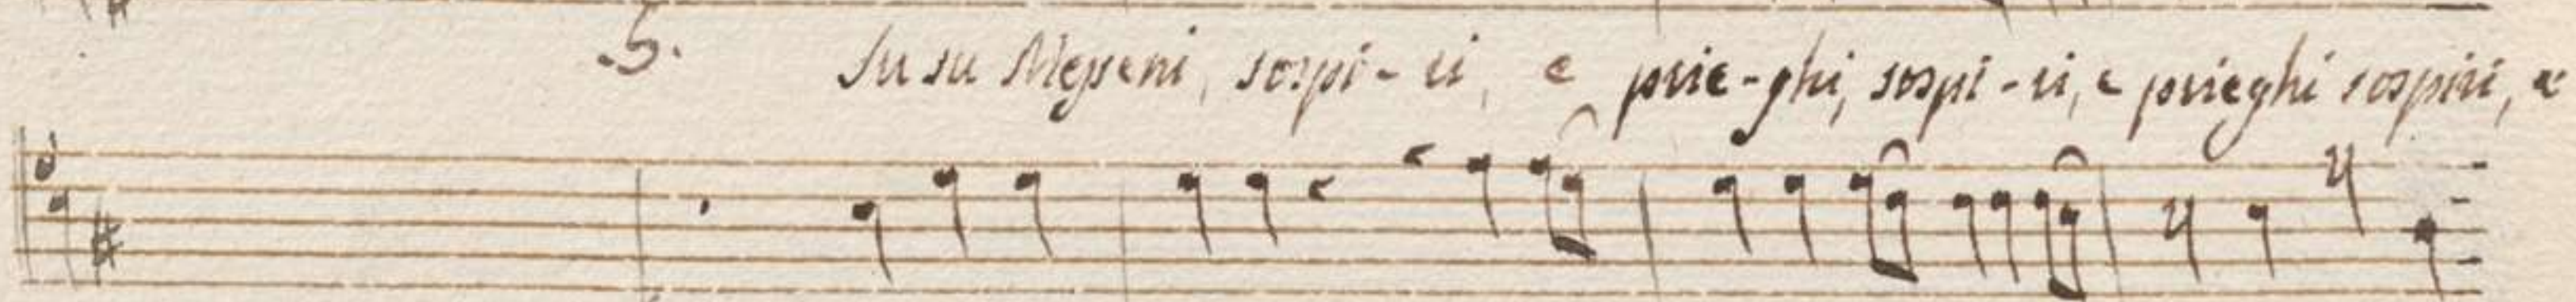 5. Su su Messeni, sospi-ri, e prie-ghi, sospi-ri, e prieghi sospiri, e